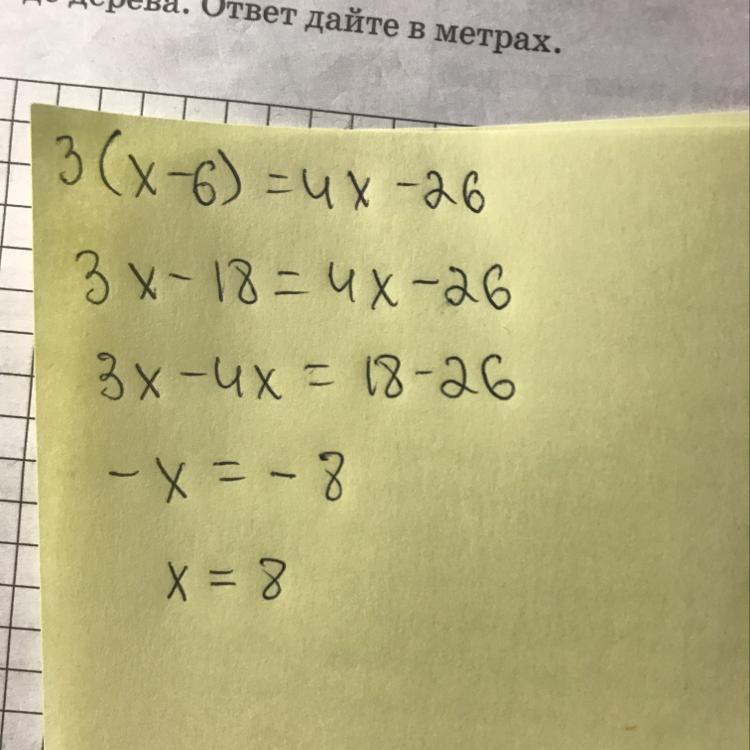 дерева. Ответ дайте в метрах.
3(x-6)=4x-26
3x-18=4x-26
3x-4x=18-26
-x=-8
x=8